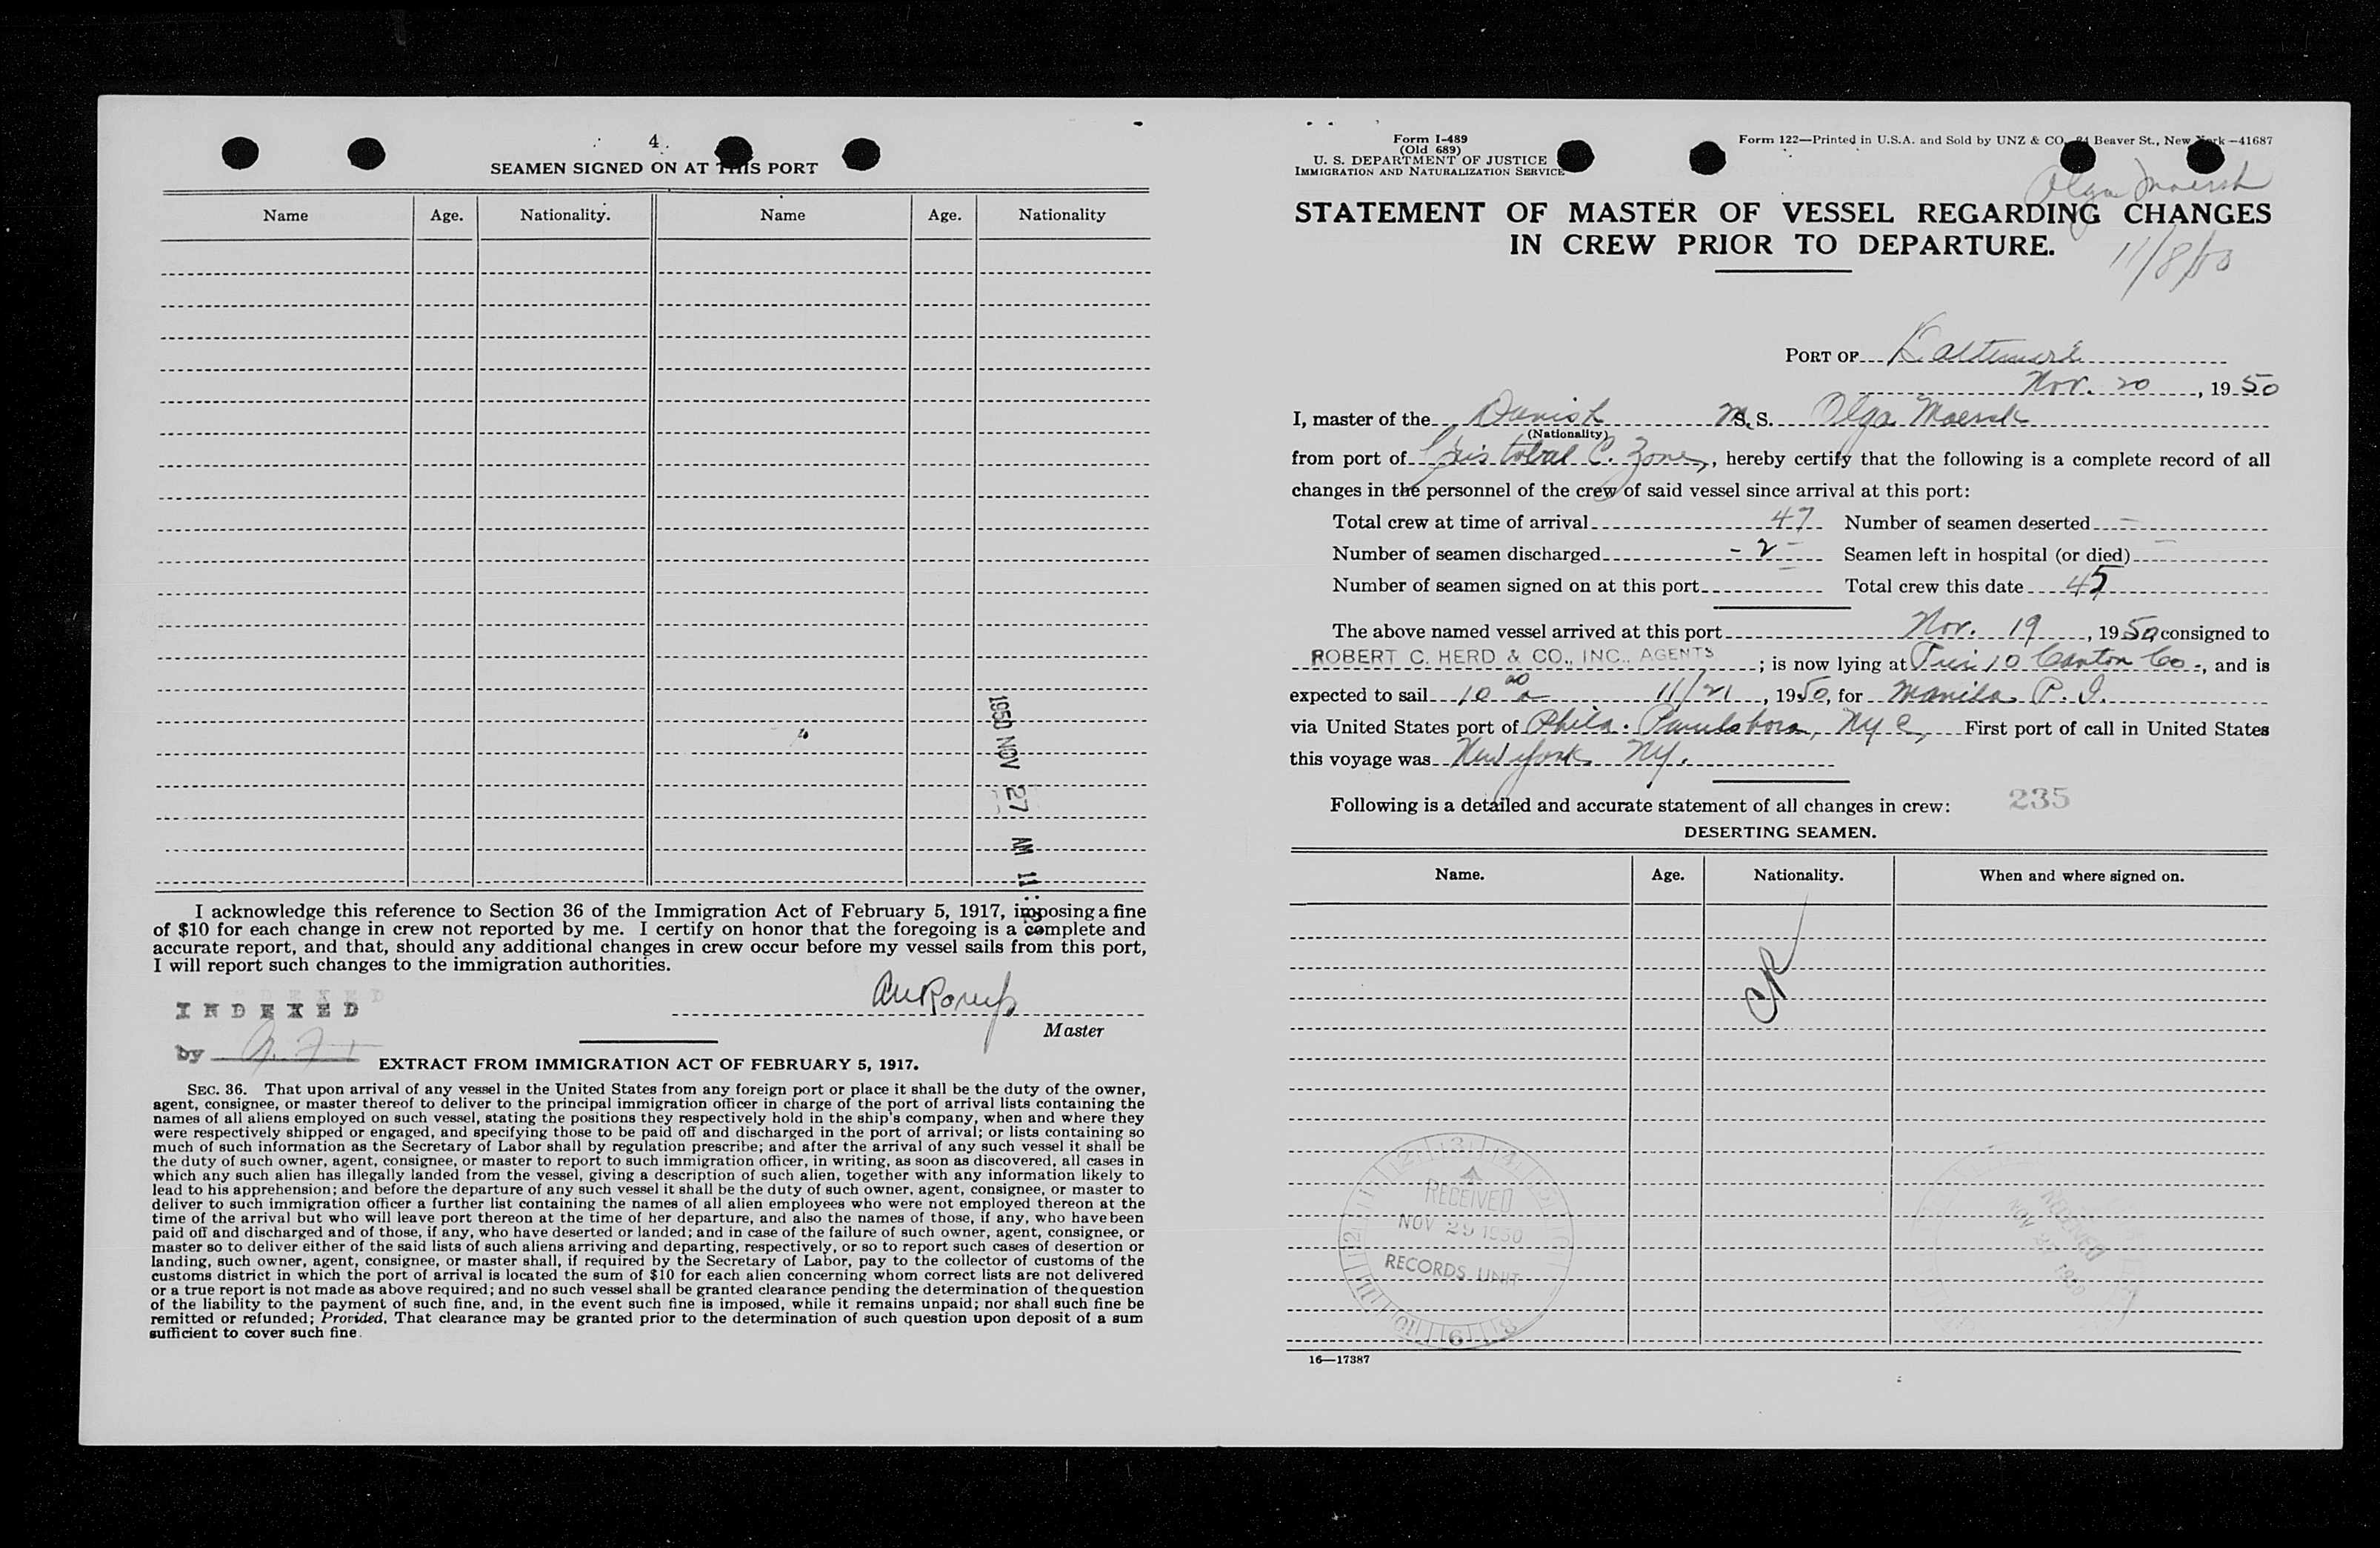 4.
SEAMEN SIGNED ON AT THIS PORT
Name Age. Nationality. Name Age. Nationality
1950 NOV 27 AM 11:
I acknowledge this reference to Section 36 of the Immigration Act of February 5, 1917, imposing a fine
of $10 for each change in crew not reported by me. I certify on honor that the foregoing is a complete and
accurate report, and that, should any additional changes in crew occur before my vessel sails from this port,
I will report such changes to the immigration authorities.
INDEXED
Master
by
EXTRACT FROM IMMIGRATION ACT OF FEBRUARY 5, 1917.
SEC. 36. That upon arrival of any vessel in the United States from any foreign port or place it shall be the duty of the owner,
agent, consignee, or master thereof to deliver to the principal immigration officer in charge of the port of arrival lists containing the
names of all aliens employed on such vessel, stating the positions they respectively hold in the ship's company, when and where they
were respectively shipped or engaged, and specifying those to be paid off and discharged in the port of arrival; or lists containing so
much of such information as the Secretary of Labor shall by regulation prescribe; and after the arrival of any such vessel it shall be
the duty of such owner, agent, consignee, or master to report to such immigration officer, in writing, as soon as discovered, all cases in
which any such alien has illegally landed from the vessel, giving a description of such alien, together with any information likely to
lead to his apprehension; and before the departure of any such vessel it shall be the duty of such owner, agent, consignee, or master to
deliver to such immigration officer a further list containing the names of all alien employees who were not employed thereon at the
time of the arrival but who will leave port thereon at the time of her departure, and also the names of those, if any, who have been
paid off and discharged and of those, if any, who have deserted or landed; and in case of the failure of such owner, agent, consignee, or
master so to deliver either of the said lists of such aliens arriving and departing, respectively, or so to report such cases of desertion or
landing, such owner, agent, consignee, or master shall, if required by the Secretary of Labor, pay to the collector of customs of the
customs district in which the port of arrival is located the sum of $10 for each alien concerning whom correct lists are not delivered
or a true report is not made as above required; and no such vessel shall be granted clearance pending the determination of the question
of the liability to the payment of such fine, and, in the event such fine is imposed, while it remains unpaid; nor shall such fine be
remitted or refunded; Provided, That clearance may be granted prior to the determination of such question upon deposit of a sum
sufficient to cover such fine.
Form I-489
(Old 689)
U. S. DEPARTMENT OF JUSTICE
IMMIGRATION AND NATURALIZATION SERVICE
Form 122—Printed in U.S.A. and Sold by UNZ & CO., 24 Beaver St., New York—41687
Olga Maersk
STATEMENT OF MASTER OF VESSEL REGARDING CHANGES
IN CREW PRIOR TO DEPARTURE.
11/8/50
PORT OF Baltimore
Nov. 20, 1950
I, master of the Danish M.S. Olga Maersk
(Nationality)
from port of Cristobal C. Zone, hereby certify that the following is a complete record of all
changes in the personnel of the crew of said vessel since arrival at this port:
Total crew at time of arrival 47 Number of seamen deserted -
Number of seamen discharged - 2 - Seamen left in hospital (or died) -
Number of seamen signed on at this port - Total crew this date 45
The above named vessel arrived at this port Nov. 19, 1950, consigned to
ROBERT C. HERD & CO., INC., AGENTS; is now lying at Pier 10 Canton Co., and is
expected to sail 10 00 a 11/21, 1950, for Manila P. I.
via United States port of Phila. Paulsboro, NYC, First port of call in United States
this voyage was New York NY.
Following is a detailed and accurate statement of all changes in crew: 235
DESERTING SEAMEN.
Name. Age. Nationality. When and where signed on.
RECEIVED
NOV 29 1950
RECORDS UNIT
RECEIVED
NOV 1950
16—17387